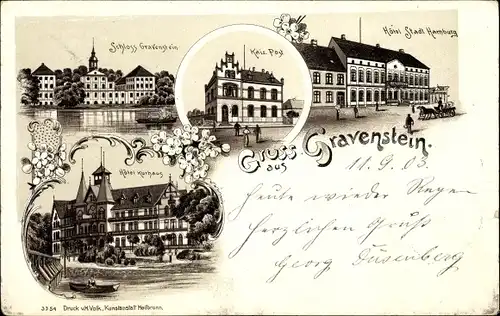 Schloss Gravenstein
Kais. Post
Hôtel Stadt Hamburg
Hôtel Kurhaus
Gruss aus Gravenstein.
11.9.03
Heute wieder Regen
Herzlichen Gruß
Georg Düsenberg
3254 Druck v. H. Volk, Kunstanstalt Heilbronn.